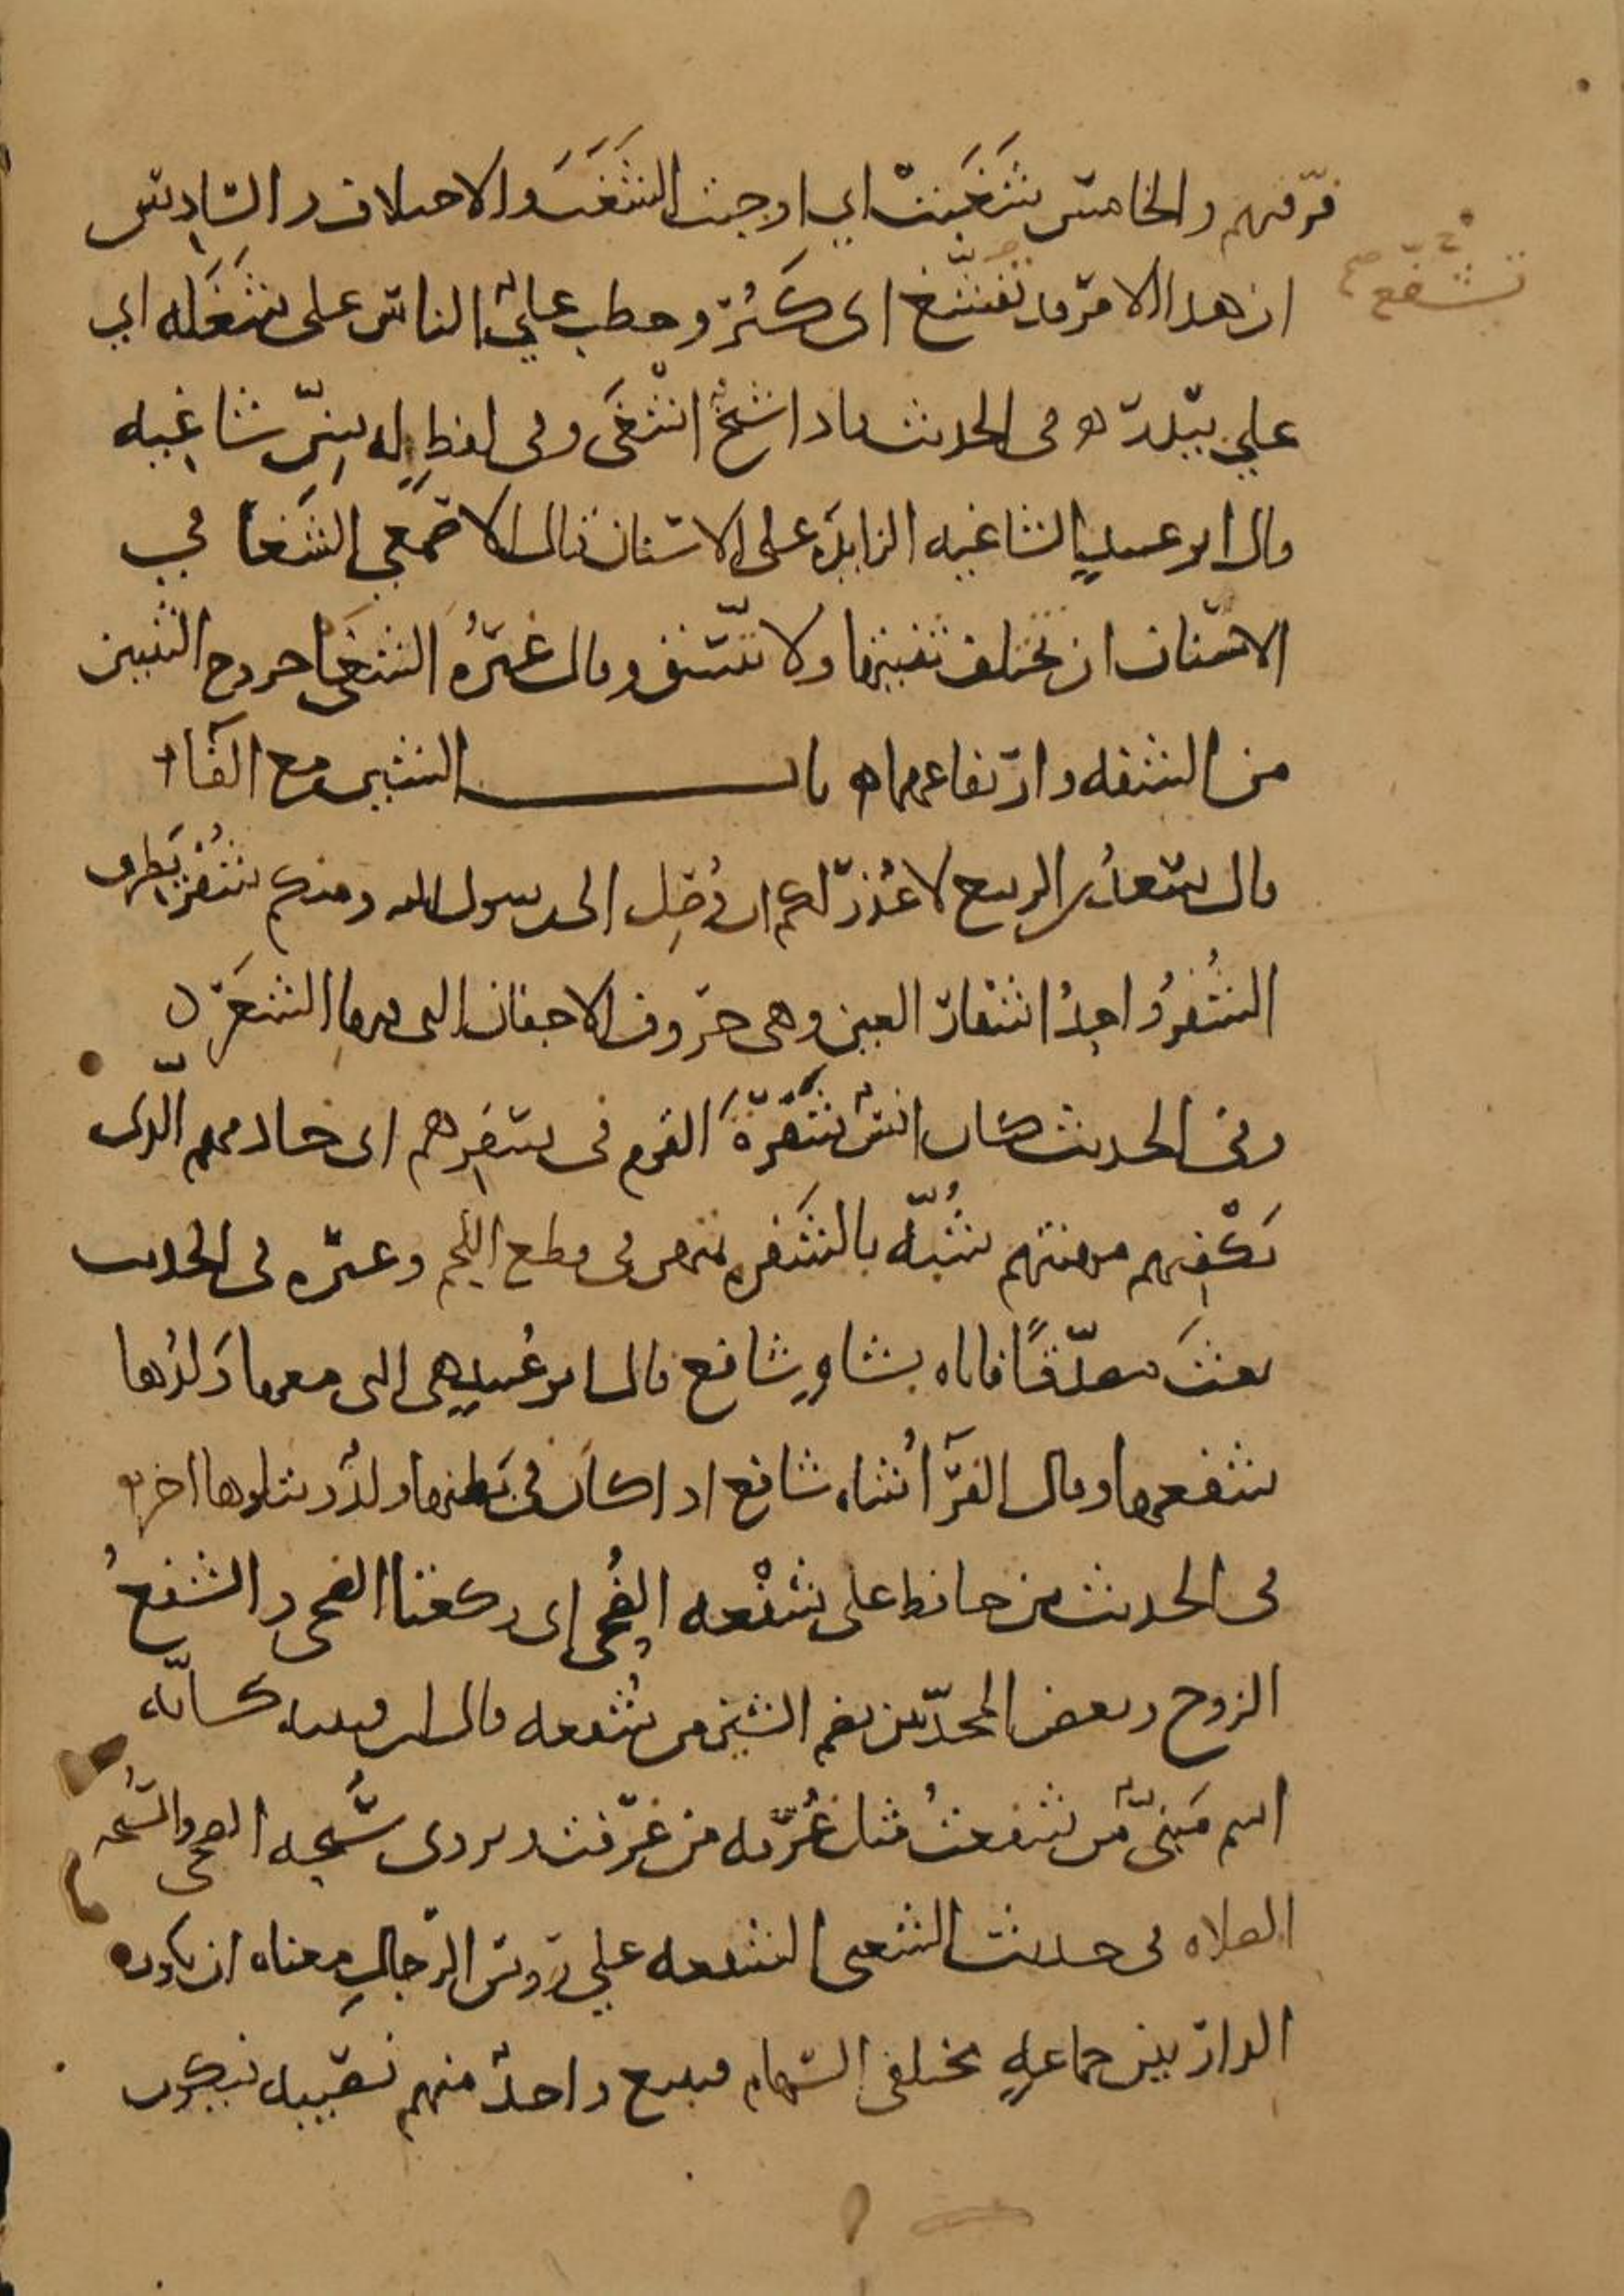 فرّقهم والخامس شَغَبَتْ اي اوجبت الشَغَبَ والاختلاف والسّادس
تشفّع صح
ان هذا الامر قد تفشّغ اى كَثُرَ وخطب عليٌّ الناس على شَغَله اي
على بيدر ه وفى الحديث فاذا شيخٌ اشْغَى وفى لفظٍ له سِنّ شاغِيه
قال ابو عبيدٍ الشاغيه الزايده على الاسنان قال الاصمعي الشغا في
الاسنان ان تختلف نبتتها ولا تتّسق وقال غيرُه الشغَا خروج الثنيتين
من الشفه وارتفاعهما ه باب الشين مع الفآء
قال سعدُ بن الربيع لا عُذرَ لكم ان وُصِل الى رسول الله ومنكم شُفْرٌ يَطرف
الشُفرُ واحِدُ اشفار العين وهى حروف الاجفان التى فيها الشعَر ن
وفى الحديث كان انسٌ شَفْرَةَ القوم فى سَفَرِهم اى خادمهم الّذى
يَكْفِيهم مهنتهم شُبّه بالشَفره تمتهن فى قطع اللحم وغيره فى الحديث
بعثَ مصدّقًا فاتاه بشاةٍ شافع قال ابو عُبيدٍ هى التى معها وَلدُها
شفعها وقال الفرّآءُ شاه شافع اذا كان فى بَطنها ولدٌ ويتلوها اخر ه
فى الحديث من حافظ على شَفْعه الضُحى اى ركعتا الضحى والشفعُ
الزوج وبعض المحدّثين بضم الشين من شُفعه قال ابن قتيبه كانّه
اسم مَبنىّ من شفعتُ مثل غُرْفه من غَرَفت ويروى سُبْحه الضحى والسُبحه
الصلاه فى حديث الشعبى الشفعه على رووس الرّجالِ معناه ان تكون
الدار بين جماعهٍ مختلفى السّهام فيبيع واحدٌ منهم نصيبه فيكون